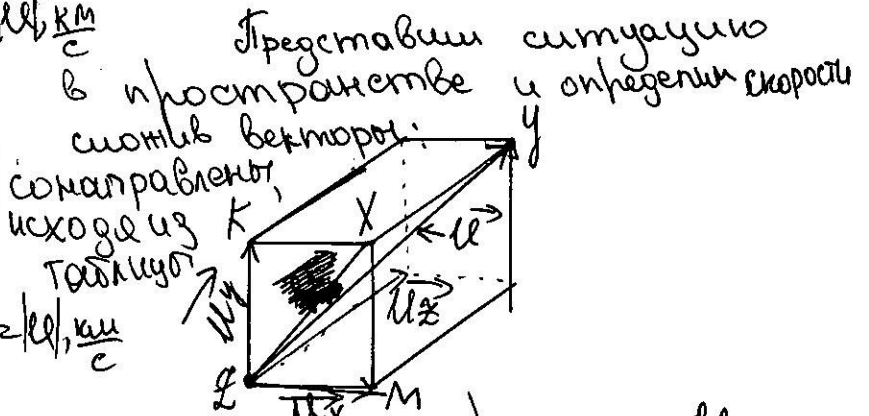 |U|, км/с
Представим ситуацию
в пространстве и определим скорости
сложив векторы:
сонаправлены,
исходя из
таблицы
=|U|, км/с
K X Y
U
Uy
Uz
Z M
Ux